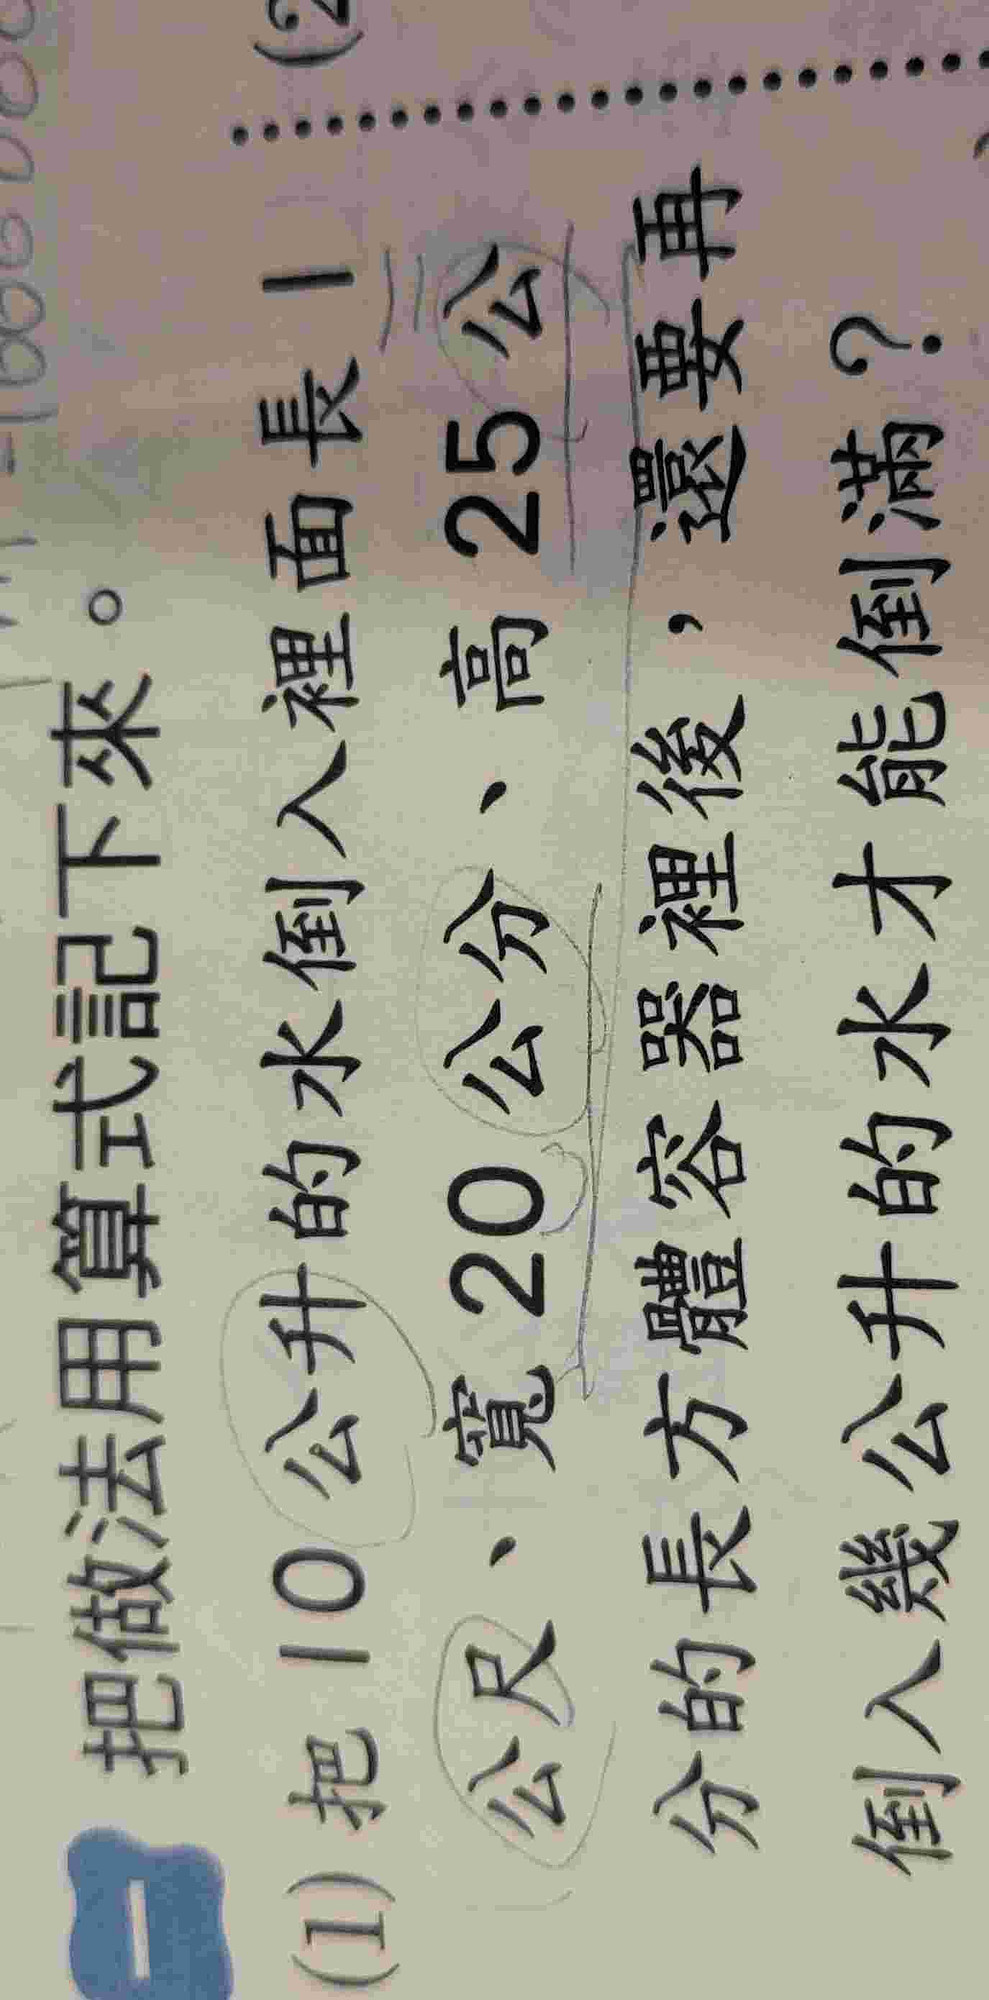 一 把做法用算式記下來。
(1) 把10公升的水倒入裡面長1
公尺、寬20公分、高25公
分的長方體容器裡後，還要再
倒入幾公升的水才能倒滿？
(2